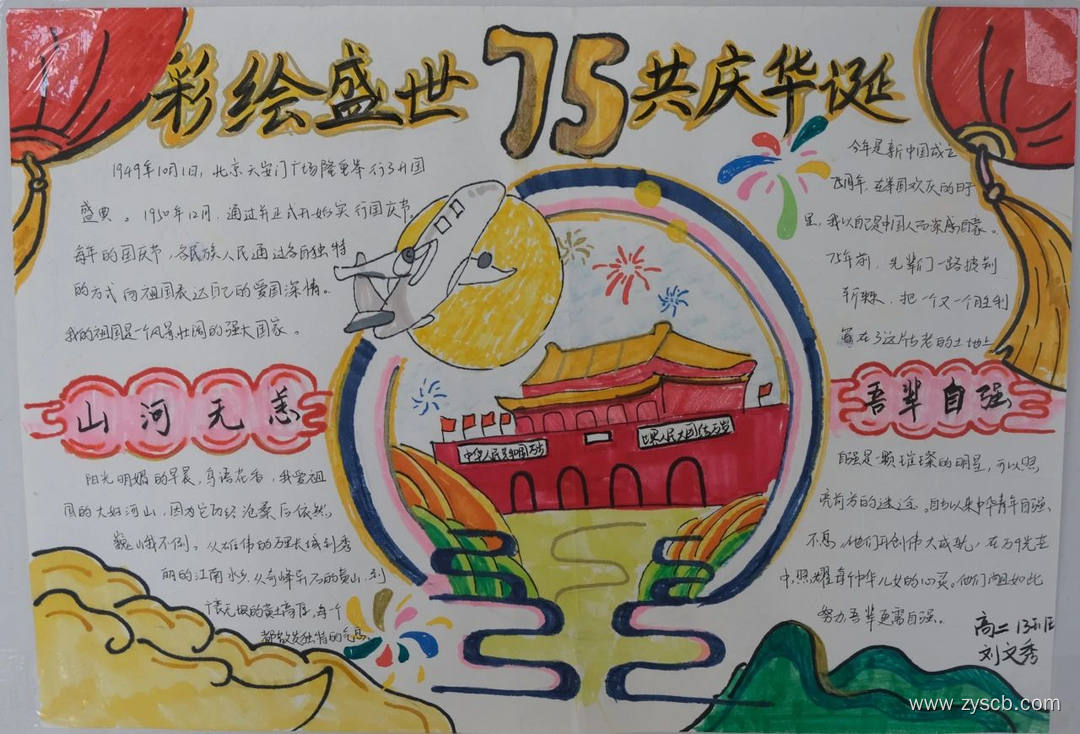 彩绘盛世 75 共庆华诞
1949年10月1日，北京天安门广场隆重举行了开国
盛典。1950年12月，通过并正式开始实行国庆节。
每年的国庆节，各民族人民通过各自独特
的方式向祖国表达自己的爱国深情。
我的祖国是一个风景壮阔的强大国家。
今年是新中国成立
75周年，在举国欢庆的日子
里，我以自己是中国人而深感自豪。
75年前，先辈们一路披荆
斩棘，把一个又一个胜利
写在了这片古老的土地上
山河无恙
阳光明媚的早晨，鸟语花香，我爱祖
国的大好河山，因为它历经沧桑后依然
巍峨不倒。从雄伟的万里长城到秀
丽的江南水乡，从奇峰异石的黄山，到
广袤无垠的黄土高原，每个
都散发独特的气息
中华人民共和国万岁
世界人民大团结万岁
吾辈自强
自强是一颗璀璨的明星，可以照
亮前方的迷途。自古以来中华青年自强
不息，他们开创伟大成就，在历史
中，照耀每个中华儿女的心灵。他们尚且如此
努力，吾辈更需自强。
高二 13班
刘文秀
www.zyscb.com